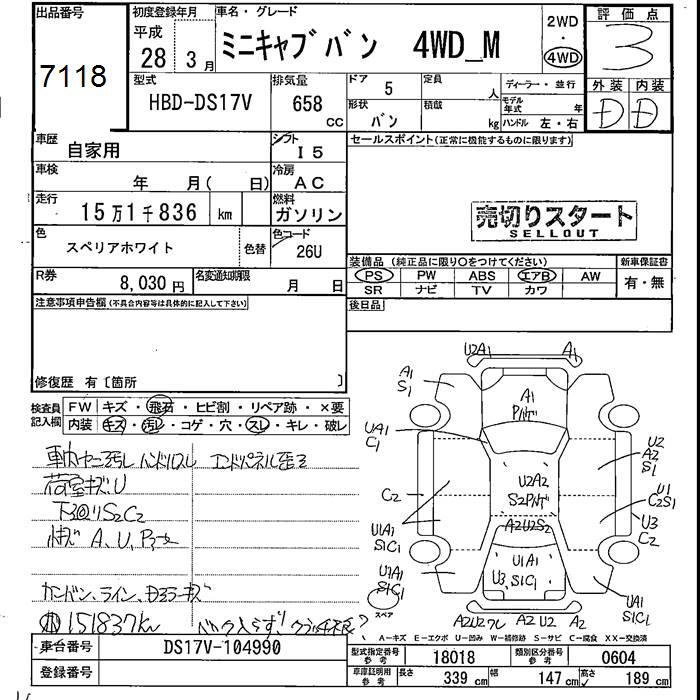 出品番号
7118
初度登録年月
平成
28年 3月
車名・グレード
ミニキャブ バン 4WD_M
2WD
・
4WD
評価点
3
外装 内装
D D
型式
HBD-DS17V
排気量
658
cc
ドア
5
形状
バン
定員
人
積載
kg
ディーラー・並行
モデル年式 年
ハンドル 左・右
車歴
自家用
シフト
I5
車検
年 月( 日)
冷房
AC
走行
15万1千836 km
燃料
ガソリン
色
スペリアホワイト
色替
色コード
26U
R券
8,030 円
名変通知期限
月 日
セールスポイント(正常に機能するものに限ります)
売切りスタート
SELLOUT
装備品(純正品に限り○をつけてください)
PS PW ABS エアB AW
SR ナビ TV カワ
新車保証書
有・無
後日品
注意事項申告欄(不具合内容等は具体的に記入して下さい)
修復歴 有〔箇所 〕
検査員記入欄
FW キズ・飛石・ヒビ割・リペア跡・×要
内装 キズ・汚レ・コゲ・穴・スレ・キレ・破レ
荷室キズU
下回りS2C2
A、U、P
151837km
U2A1 A1
A1
S1
A1
U1A1
C1
U2
A2
S1
U2A2
C2
U1
C2S1
U3
C2
A2U2S2
U1A1
S1C1
U1A1
S1C1
U1A1
U3 S1C1
U1A1
S1C1
スペア
A2U2ワレ A2 U2 A2
A-キズ E-エクボ U-凹み W-補修跡 S-サビ C-腐食 XX-交換済
車台番号
DS17V-104990
登録番号
型式指定番号
参考
18018
類別区分番号
参考
0604
車庫証明用
参考
長さ
339 cm
幅
147 cm
高さ
189 cm